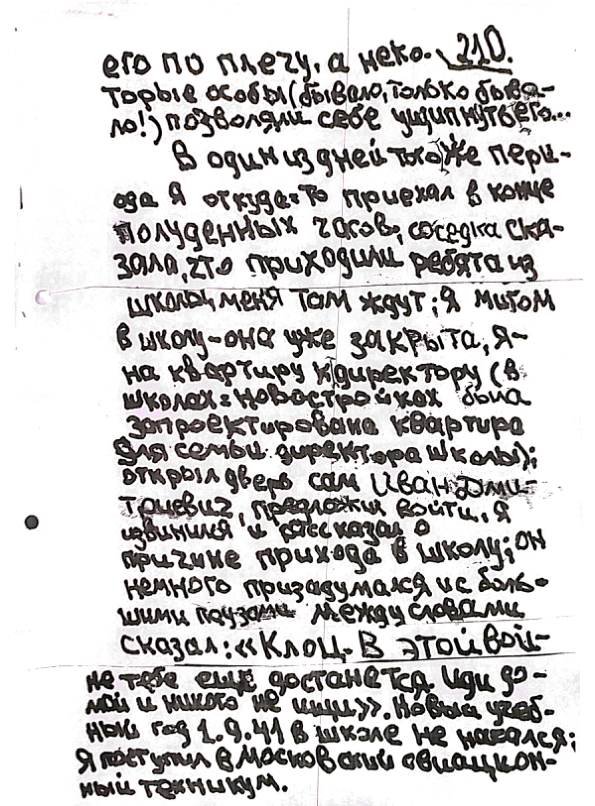 его по плечу, а неко- 210.
торые особы (бывало, только быва-
ло!) позволяли себе ущипнуть его...
В один из дней того же пери-
ода я откуда-то приехал в конце
полуденных часов, соседка ска-
зала, что приходили ребята из
школы, меня там ждут; я мигом
в школу - она уже закрыта, я -
на квартиру к директору (в
школах = новостройках была
запроектирована квартира
для семьи директора школы);
открыл дверь сам Иван Дми-
триевич, предложил войти, я
извинился и рассказал о
причине прихода в школу; он
немного призадумался и с боль-
шими паузами между словами
сказал: «Клоц. В этой вой-
не тебе ещё достанется. Иди до-
мой и никого не ищи». Новый учеб-
ный год 1.9.41 в школе не начался;
я поступил в Московский авиацион-
ный техникум.